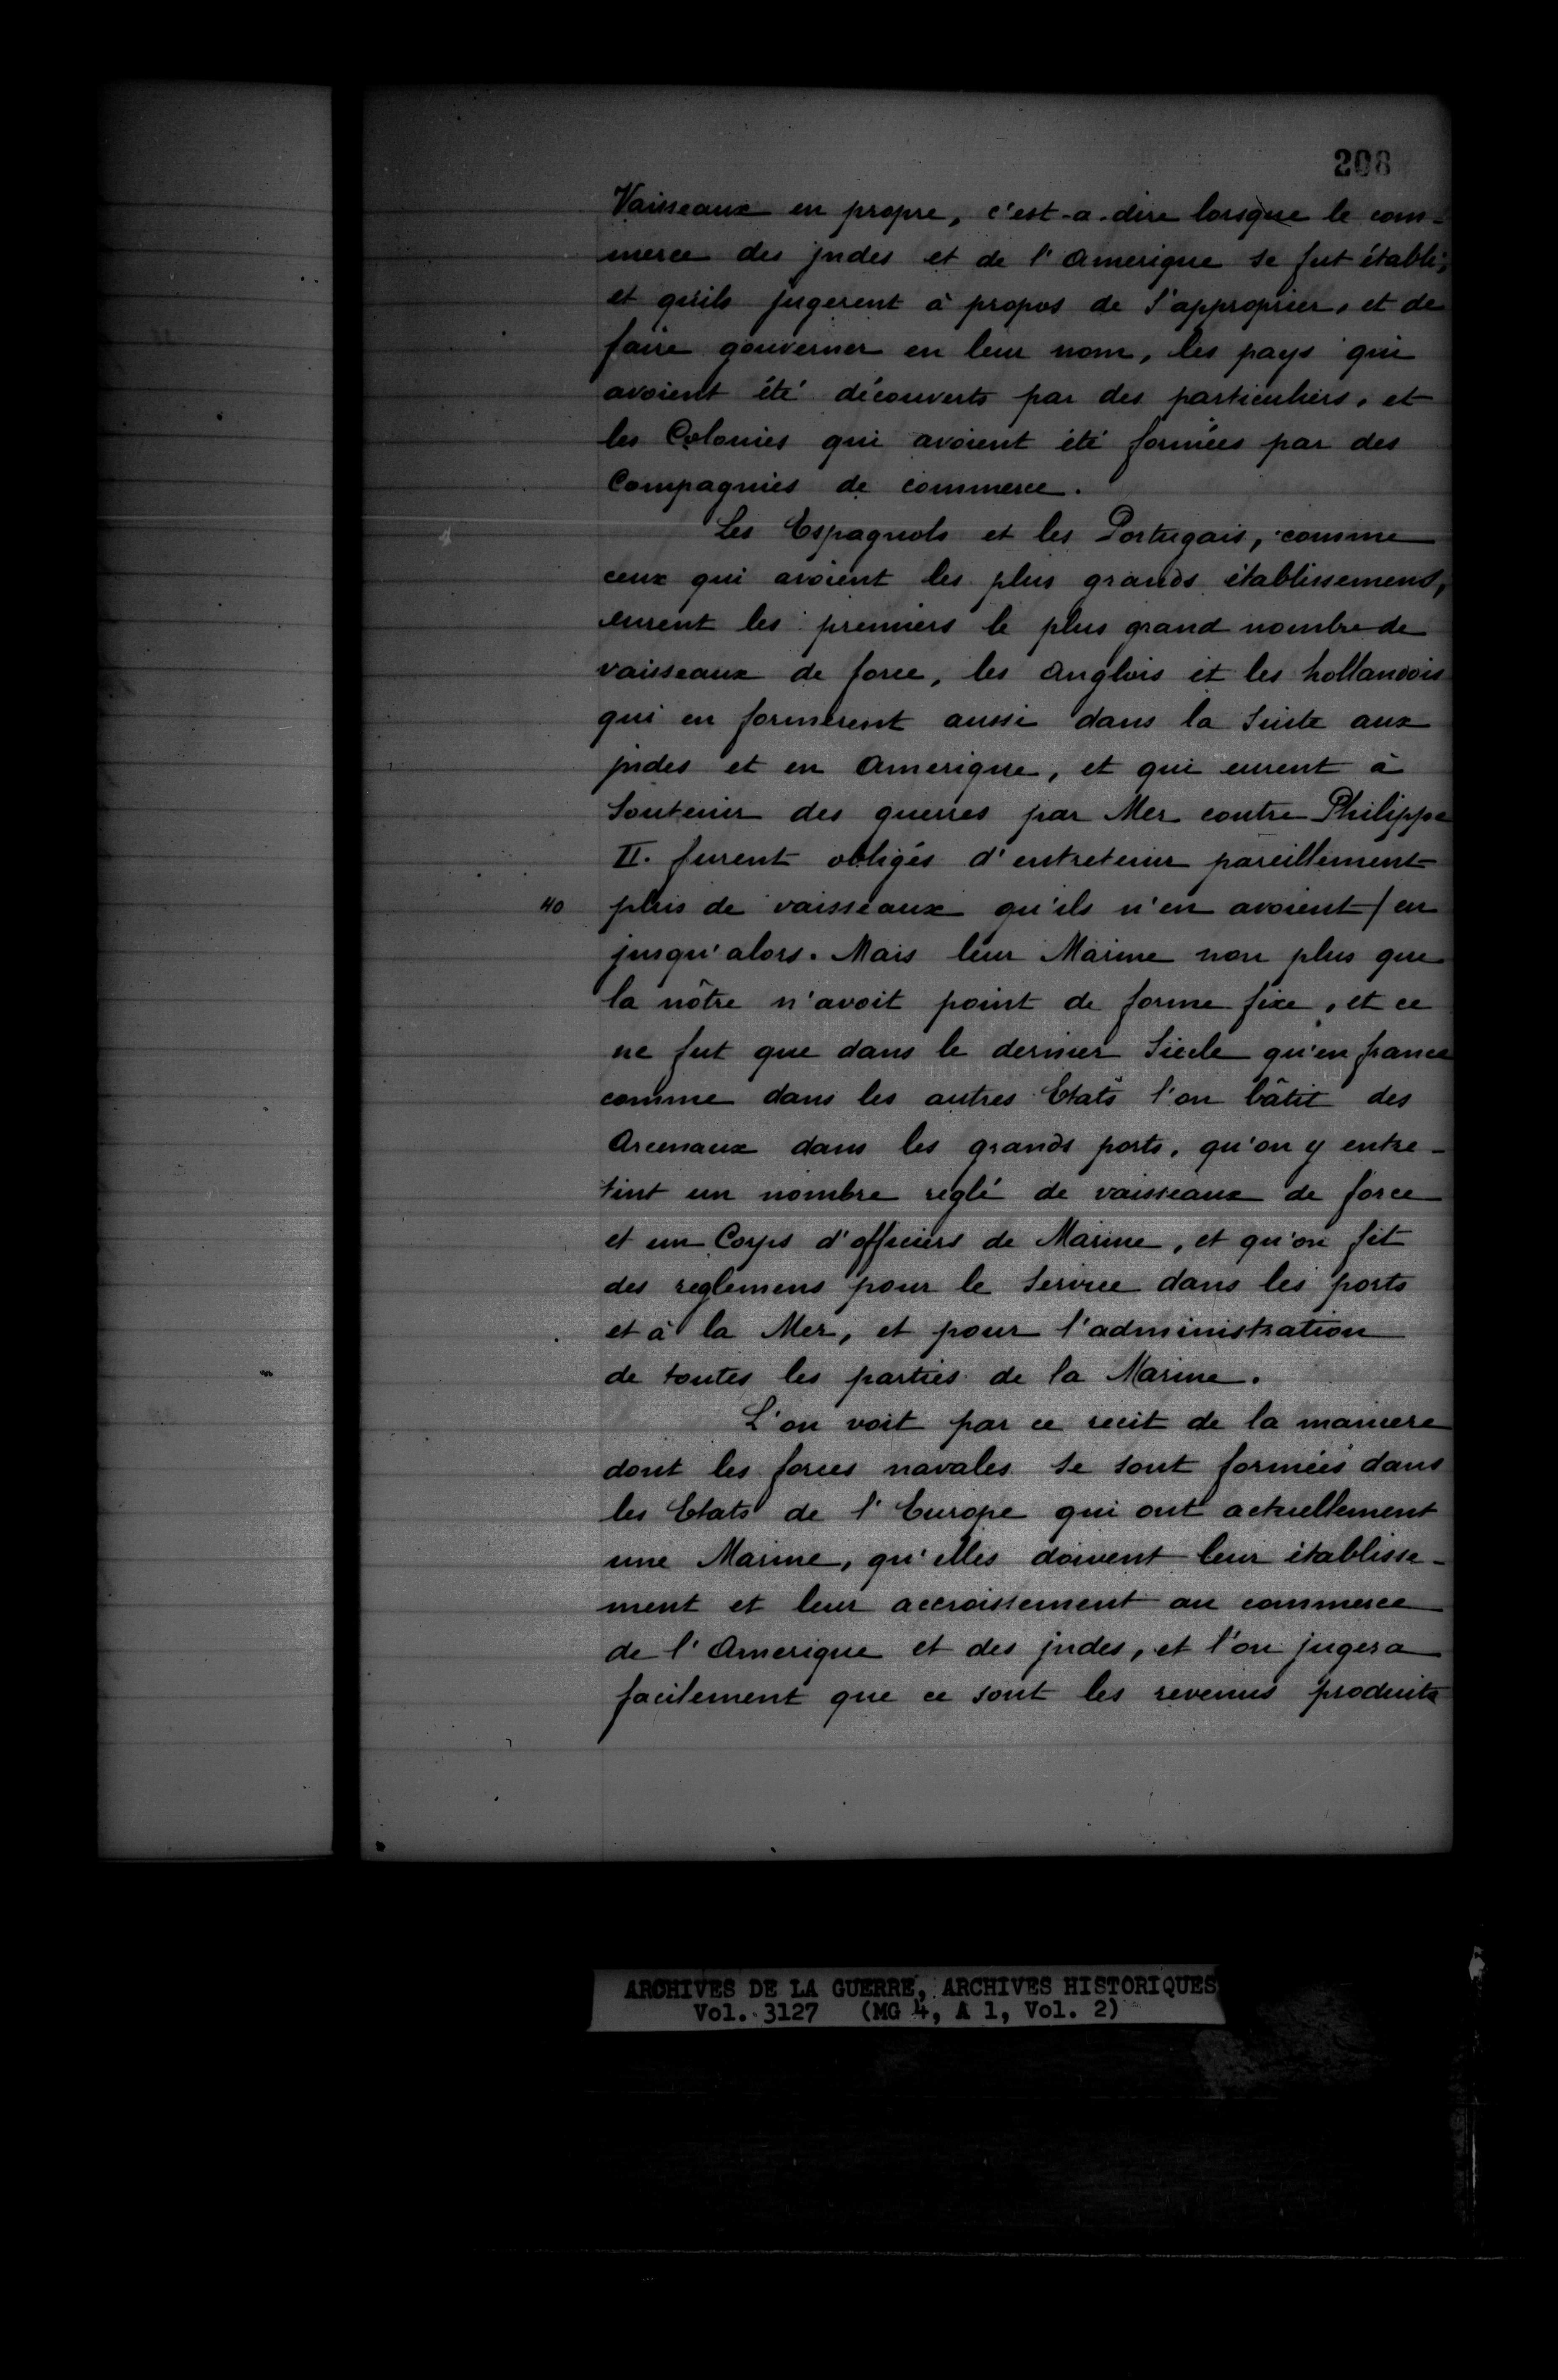 208
Vaisseaux en propre, c'est-a-dire lorsque le com-
merce des jndes et de l'amerique se fut établi,
et qu'ils jugerent à propos de s'approprier, et de
faire gouverner en leur nom, les pays qui
avoient été découverts par des particuliers, et
les Colonies qui avoient été formées par des
Compagnies de commerce.
Les Espagnols et les Portugais, comme
ceux qui avoient les plus grands établissemens,
eurent les premiers le plus grand nombre de
vaisseaux de force, les anglois et les hollandois
qui en formerent aussi dans la suite aux
jndes et en amerique, et qui eurent à
soutenir des guerres par Mer contre Philippe
II. furent obligés d'entretenir pareillement
40 plus de vaisseaux qu'ils n'en avoient / eu
jusqu'alors. Mais leur Marine non plus que
la nôtre n'avoit point de forme fixe, et ce
ne fut que dans le dernier siecle qu'en france
comme dans les autres Etats l'on bâtit des
arcenaux dans les grands ports, qu'on y entre-
tint un nombre reglé de vaisseaux de force
et un Corps d'officiers de Marine, et qu'on fit
des reglemens pour le service dans les ports
et à la Mer, et pour l'administration
de toutes les parties de la Marine.
L'on voit par ce recit de la maniere
dont les forces navales se sont formées dans
les Etats de l'Europe qui ont actuellement
une Marine, qu'elles doivent leur établisse-
ment et leur accroissement au commerce
de l'Amerique et des jndes, et l'on jugera
facilement que ce sont les revenus produits
ARCHIVES DE LA GUERRE, ARCHIVES HISTORIQUES
Vol. 3127 (MG 4, A 1, Vol. 2)